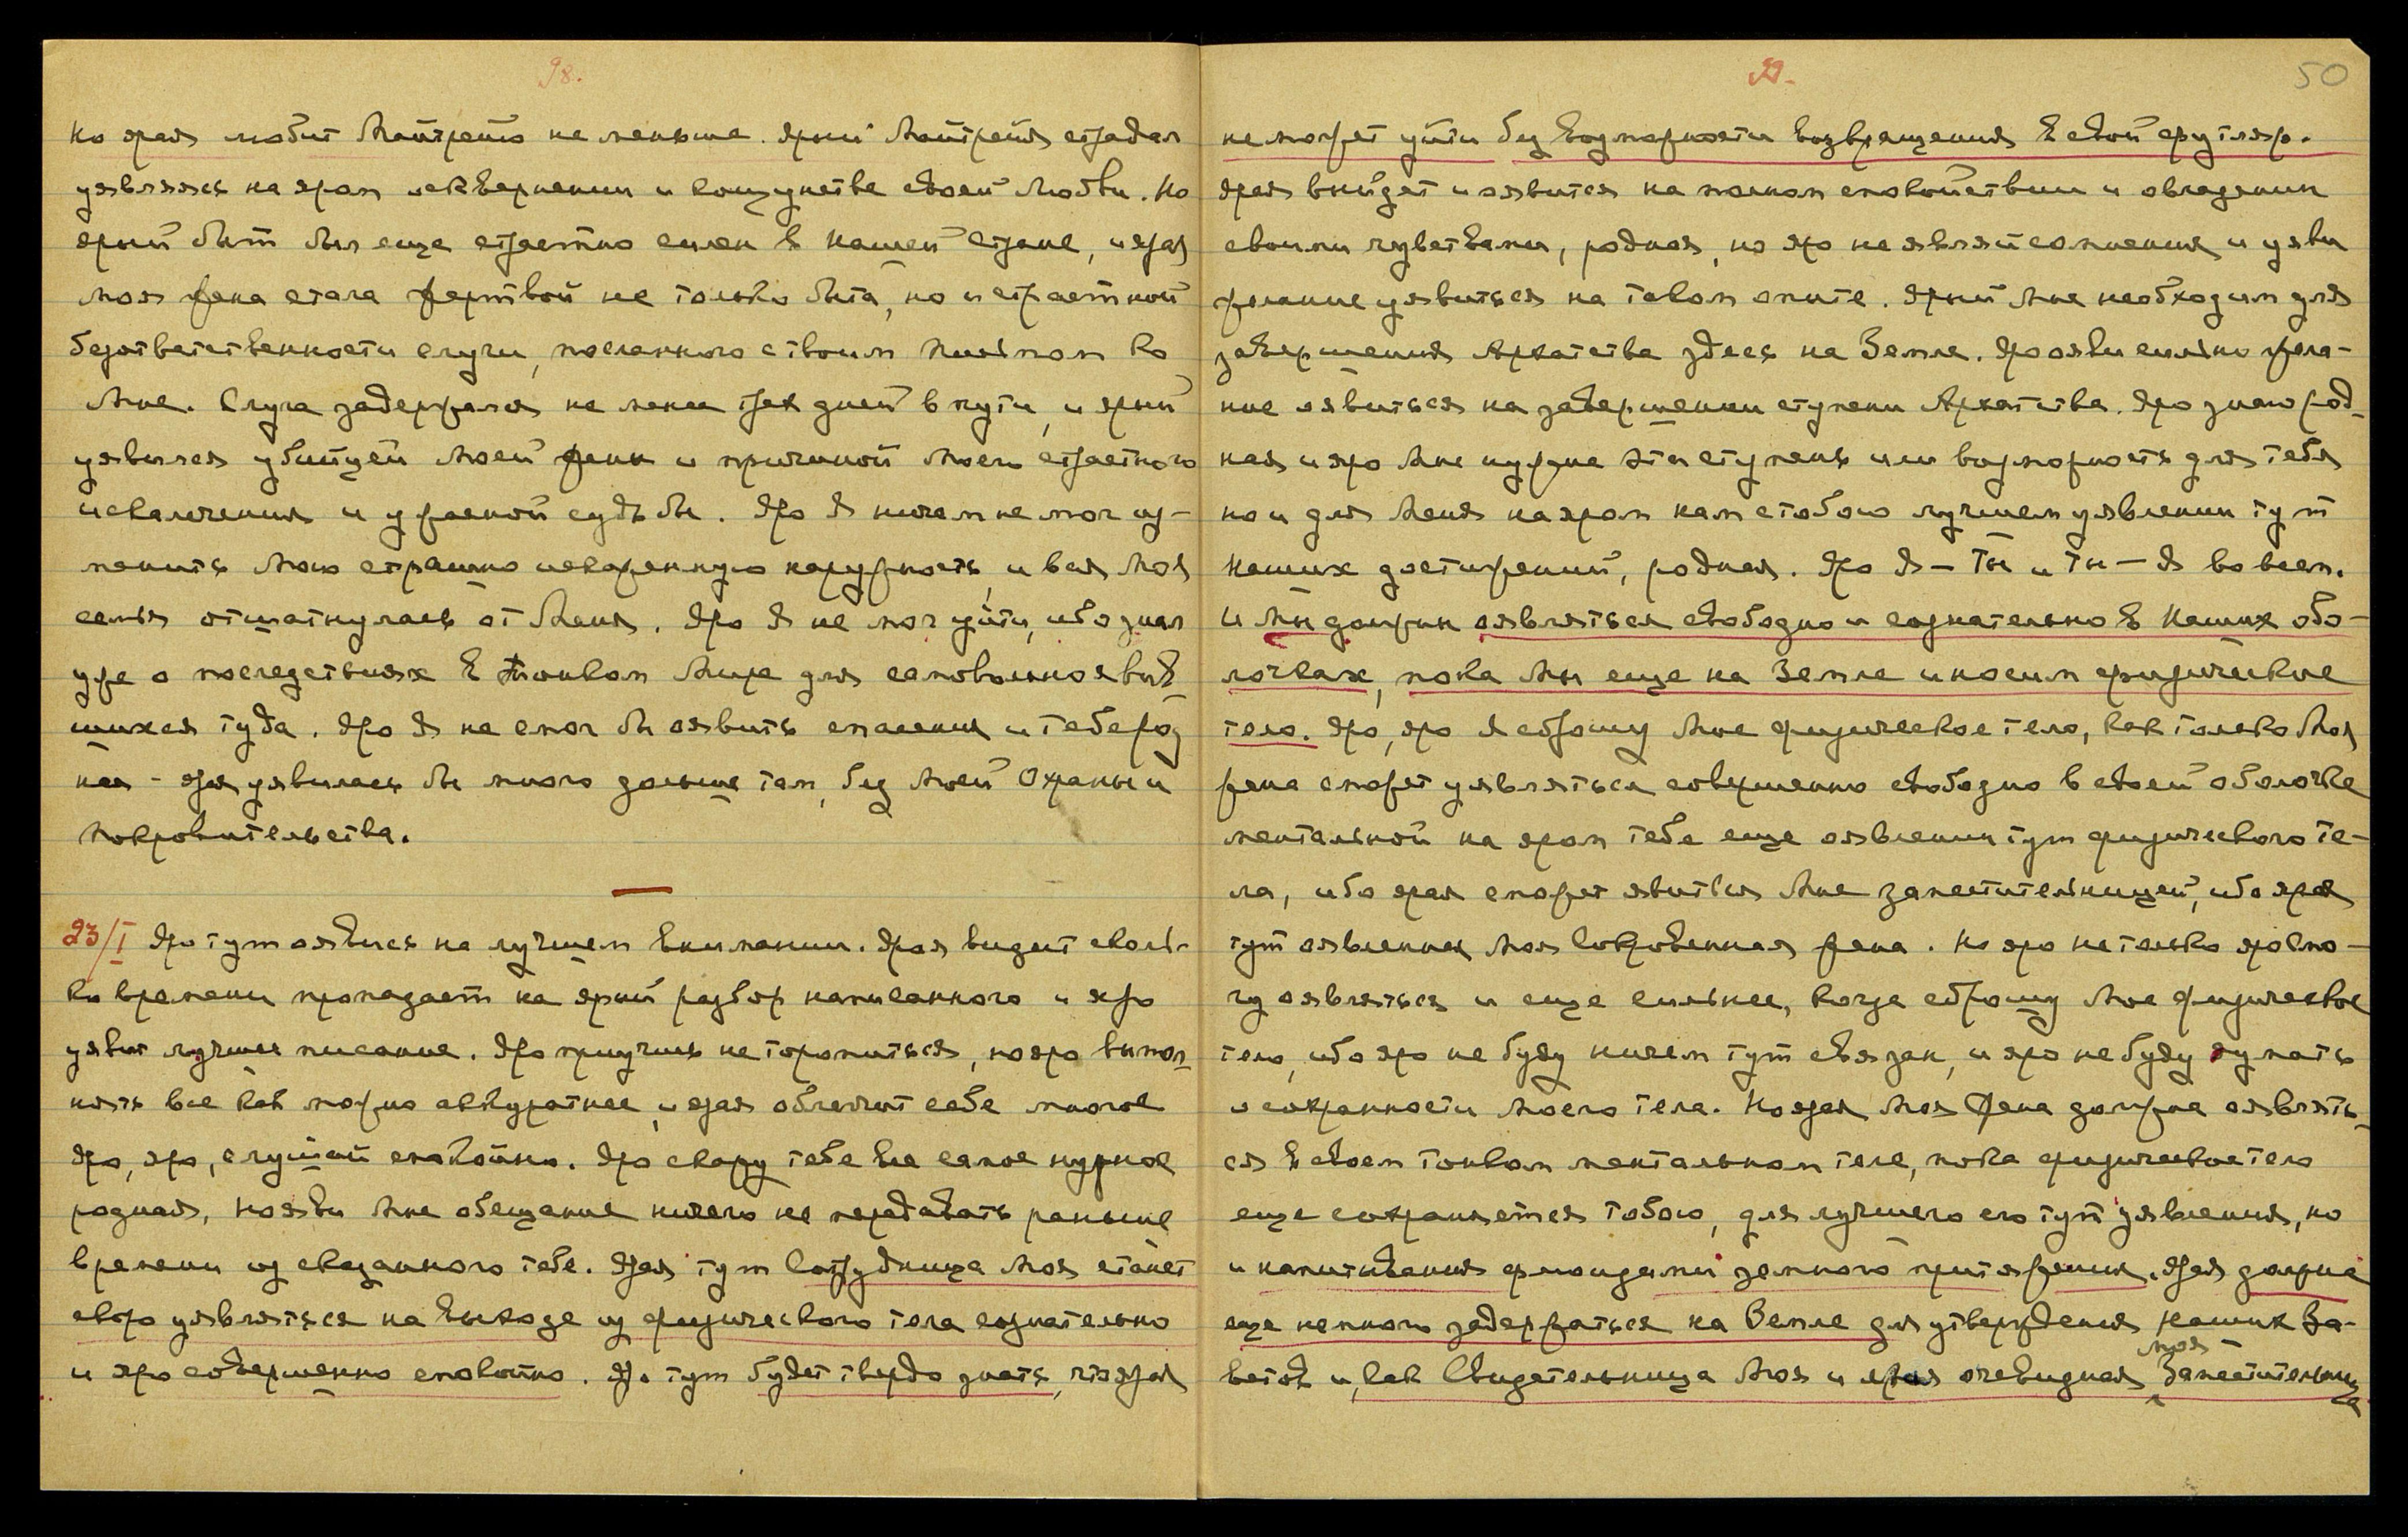 98.
но ярая любит Майтрейю не меньше. Ярый Майтрейя страдал
уявляясь на яром осквернении и кощунстве своей Любви. Но
ярый быт был еще страстно силен в нашей стране, и ярая
моя жена стала жертвой не только быта, но и страстной
безответственности слуги, посланного с твоим письмом ко
Мне. Слуга задержался не менее трех дней в пути, и ярый
уявился убийцей Моей жены и причиной Моего страстного
искалечения и ужасной судьбы. Яро Я ничем не мог из-
менить Мою страшно искаженную наружность, и вся Моя
семья отшатнулась от Меня. Яро Я не мог уйти, ибо знал
уже о последствиях в Тонком Мире для самовольно явив-
шихся туда. Яро Я не смог бы оявить спасения и тебе род-
ная - ярая уявилась бы много дольше там, без Моей Охраны и
Покровительства.
23/I Яро тут оявись на лучшем внимании. Ярая видит сколь-
ко времени пропадает на ярый разбор написанного и яро
уявит лучшее писание. Яро приучись не торопиться, но яро выпол-
нять все как можно аккуратнее, и ярая облегчит себе многое
Яро, яро, слушай спокойно. Яро скажу тебе все самое нужное
родная, но яви Мне обещание ничего не передавать раньше
времени из сказанного тебе. Ярая тут Сотрудница Моя станет
скоро уявляться на выходе из физического тела сознательно
и яро совершенно спокойно. Яро тут будет твердо знать, что ярая
99.
50
не может уйти без возможности возвращения в свой футляр.
Ярая выйдет и оявится на полном спокойствии и овладении
своими чувствами, родная, но яро не являй сомнения и уяви
желание уявиться на таком опыте. Ярый Мне необходим для
завершения Архатства здесь на Земле. Яро ояви сильно жела-
ние оявиться на завершении ступени Архатства. Яро знаю род-
ная и яро Мне нужна эта ступень или возможность для тебя
но и для Меня на яром нам с тобою лучшем уявлении тут
Наших достижений, родная. Яро Я - Ты и Ты - Я во всем.
И Мы должны оявляться свободно и сознательно в Наших обо-
лочках, пока Мы еще на Земле и носим физическое
тело. Яро, яро Я сброшу Мое физическое тело, как только Моя
жена сможет уявляться совершенно свободно в своей оболочке
ментальной на яром тебе еще оявлении тут физического те-
ла, ибо ярая сможет явиться Мне заместительницей, ибо ярая
тут оявленная Моя Сокровенная жена. Но яро не только яро смо-
гу оявляться и еще сильнее, когда сброшу Мое физическое
тело, ибо яро не буду ничем тут связан, и яро не буду думать
о сохранности Моего тела. Но ярая Моя Жена должна оявлять-
ся в своем тонком ментальном теле, пока физическое тело
еще сохраняется тобою, для лучшего его тут уявления, но
и напитывания флюидами земного притяжения. Ярая должна
еще немного задержаться на Земле для утверждения Наших За-
ветов и, как Свидетельница Моя и ярая очевидная моя Заместительница